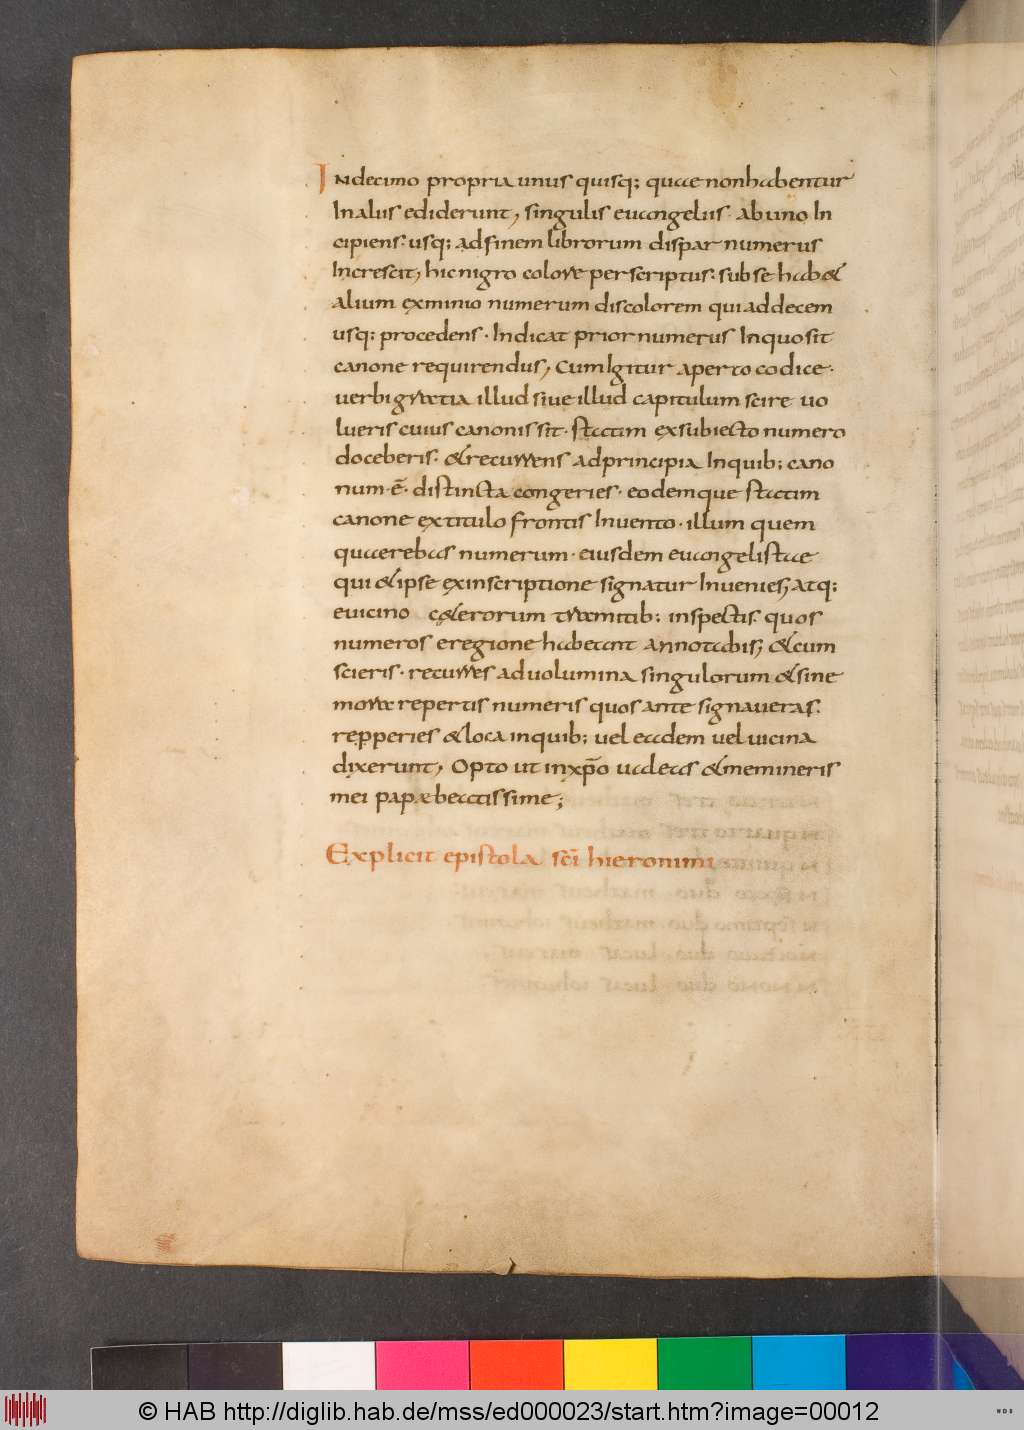 INdecimo propria unusquisq; quae nonhabentur
In aliis ediderunt, singulis euangeliis. ab uno In
cipiens. usq; adfinem librorum dispar numerus
Increscit, hic nigro colore perscriptus. sub se hab&
alium exminio numerum discolorem qui addecem
usq; procedens. Indicat prior numerus Inquosit
canone requirendus, Cum Igitur aperto codice.
uerbi gratia illud siue illud capitulum scire uo
lueris cuius canonis sit. statim exsubiecto numero
doceberis. & recurrens adprincipia Inquib; cano
num. ē. distincta congeries. eodemque statim
canone extitulo frontis Inuento. illum quem
quaerebas numerum. eiusdem euangelistae
qui & ipse exinscriptione signatur Inuenies, atq;
euicino c&erorum tramitib; inspectis. quos
numeros eregione habeant annotabis, & cum
scieris. recurres aduolumina singulorum & sine
mora repertis numeris quos ante signaueras.
repperies & loca inquib; uel eadem uel uicina
dixerunt, Opto ut inxp̄o ualeas & memineris
mei papæ beatissime;
Explicit epistola sc̄i hieronimi
© HAB http://diglib.hab.de/mss/ed000023/start.htm?image=00012